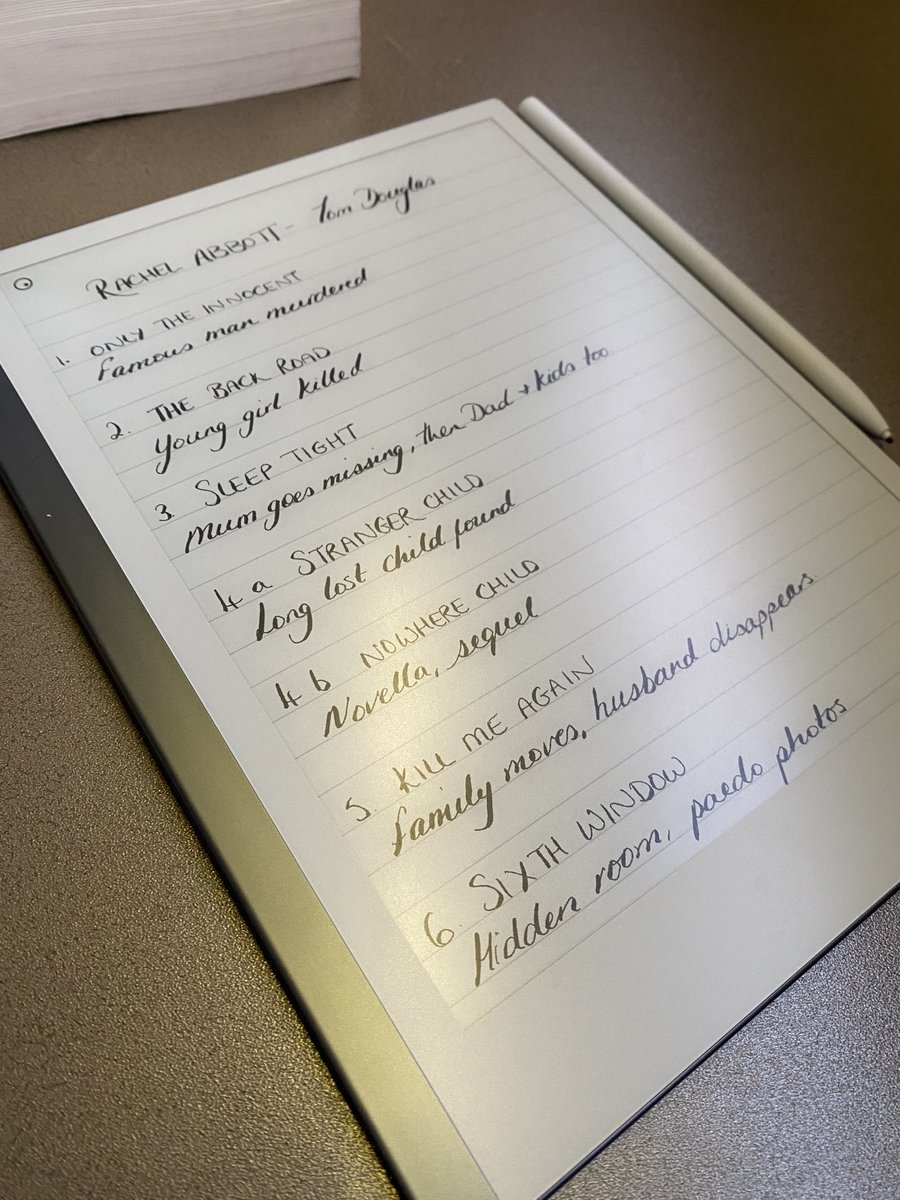 RACHEL ABBOTT - Tom Douglas
1. ONLY THE INNOCENT
Famous man murdered
2. THE BACK ROAD
Young girl killed
3. SLEEP TIGHT
Mum goes missing, then Dad + kids too.
4 a STRANGER CHILD
Long lost child found
4 b NOWHERE CHILD
Novella, sequel
5. KILL ME AGAIN
Family moves, husband disappears.
6. SIXTH WINDOW
Hidden room, paedo photos